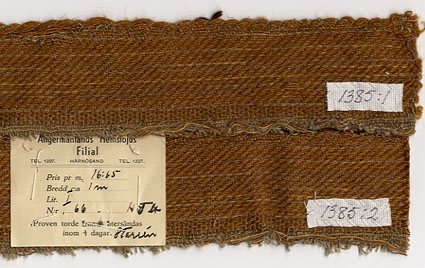 1385:1
Ångermanlands Hemslöjds
Filial
TEL. 1227. HÄRNÖSAND TEL. 1227.
Pris pr m. 16.65
Bredd ca 1 m
Lit. I
N:r 66
1385:2
Proven torde franco återsändas
inom 4 dagar.